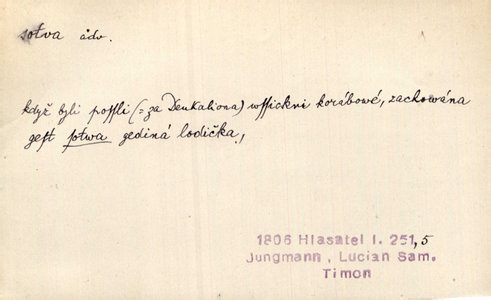 sotva adv.
když byli possli (= za Deukaliona) wssickni korábowé, zachowána
gest sotwa gediná lodička,
1806 Hlasatel I. 251,5
Jungmann, Lucian Sam.
Timon